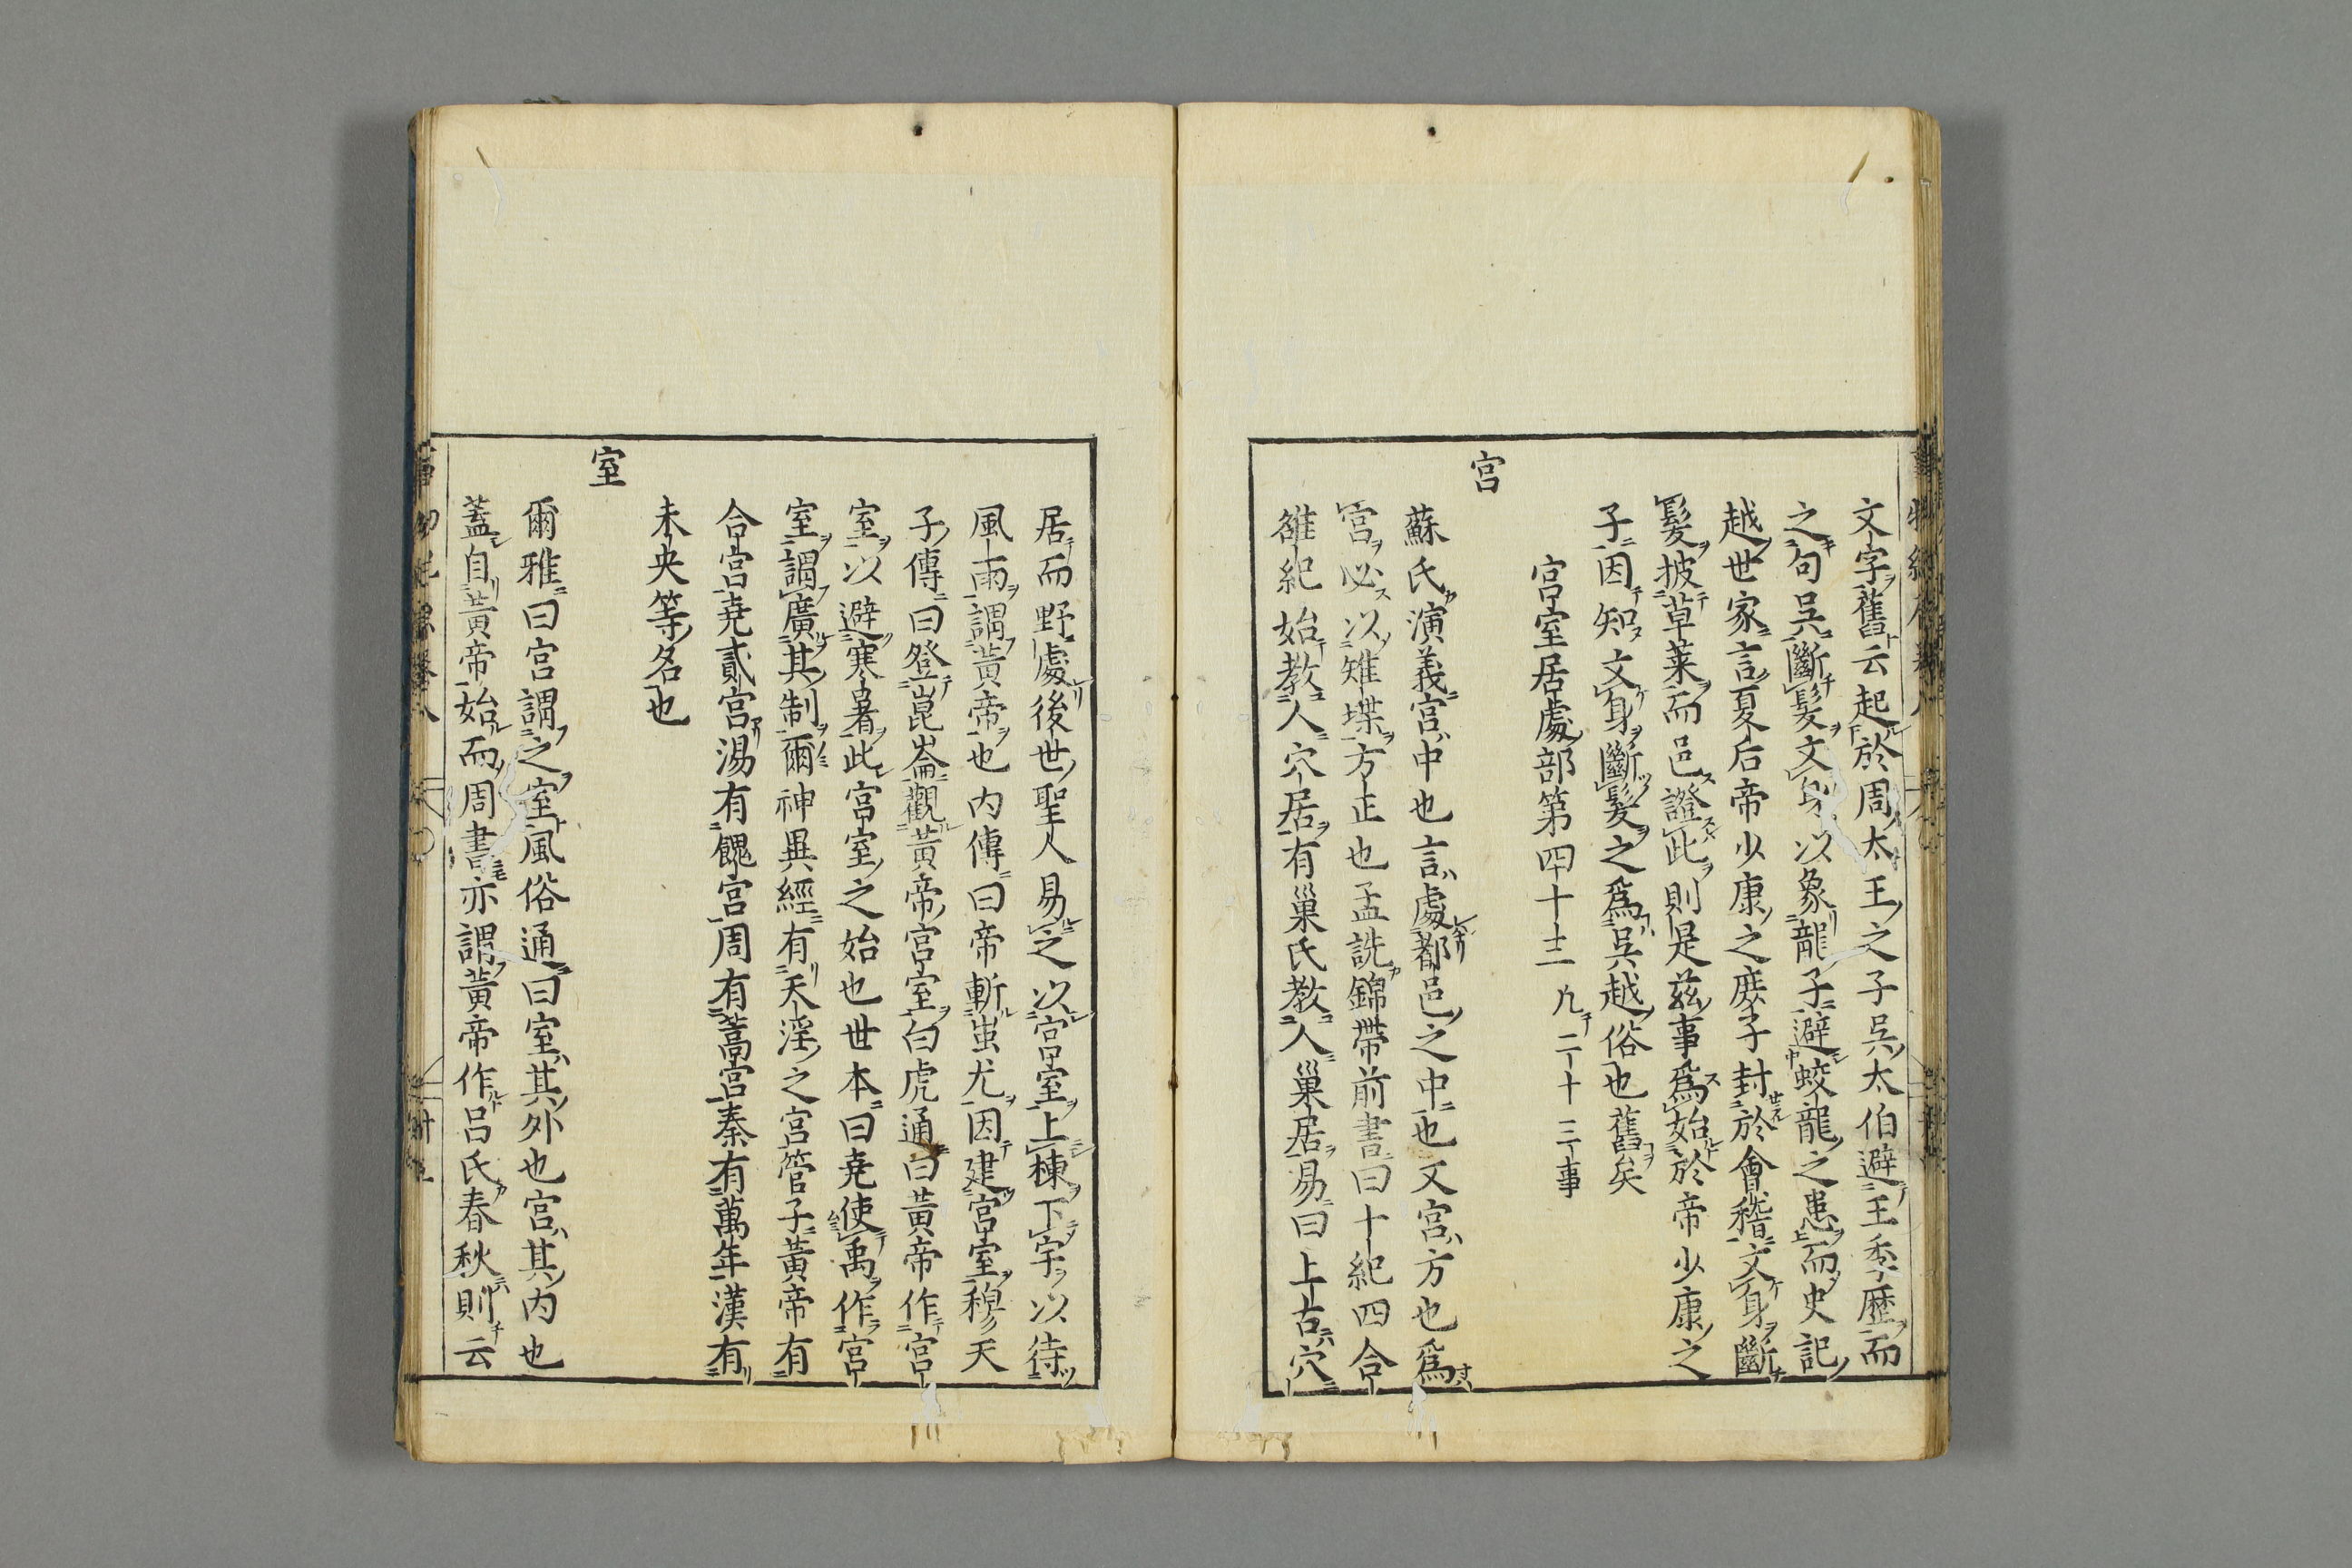 文字舊云起於周太王之子吳太伯避王季歷而
之句吳斷髮文身以象龍子避蛟龍之患而史記
越世家言夏后帝少康之庶子封於會稽文身斷
髮披草萊而邑證此則是茲事爲始於帝少康之
子因知文身斷髮之爲吳越俗也舊矣
宮室居處部第四十二 凡二十三事
宮
蘇氏演義宮中也言處都邑之中也又宮方也爲
宮必以雉堞方正也孟詵錦帶前書曰十紀四合
雒紀始教人穴居有巢氏教人巢居易曰上古穴
居而野處後世聖人易之以宮室上棟下宇以待
風雨謂黃帝也内傳曰帝斬蚩尤因建宮室穆天
子傳曰登崑崙觀黃帝宮室白虎通曰黃帝作宮
室以避寒暑此宮室之始也世本曰堯使禹作宮
室謂廣其制爾神異經有天淫之宮管子黃帝有
合宮堯貳宮湯有餽宮周有蒿宮秦有萬年漢有
未央等名也
室
爾雅曰宮謂之室風俗通曰室其外也宮其内也
蓋自黃帝始而周書亦謂黃帝作呂氏春秋則云